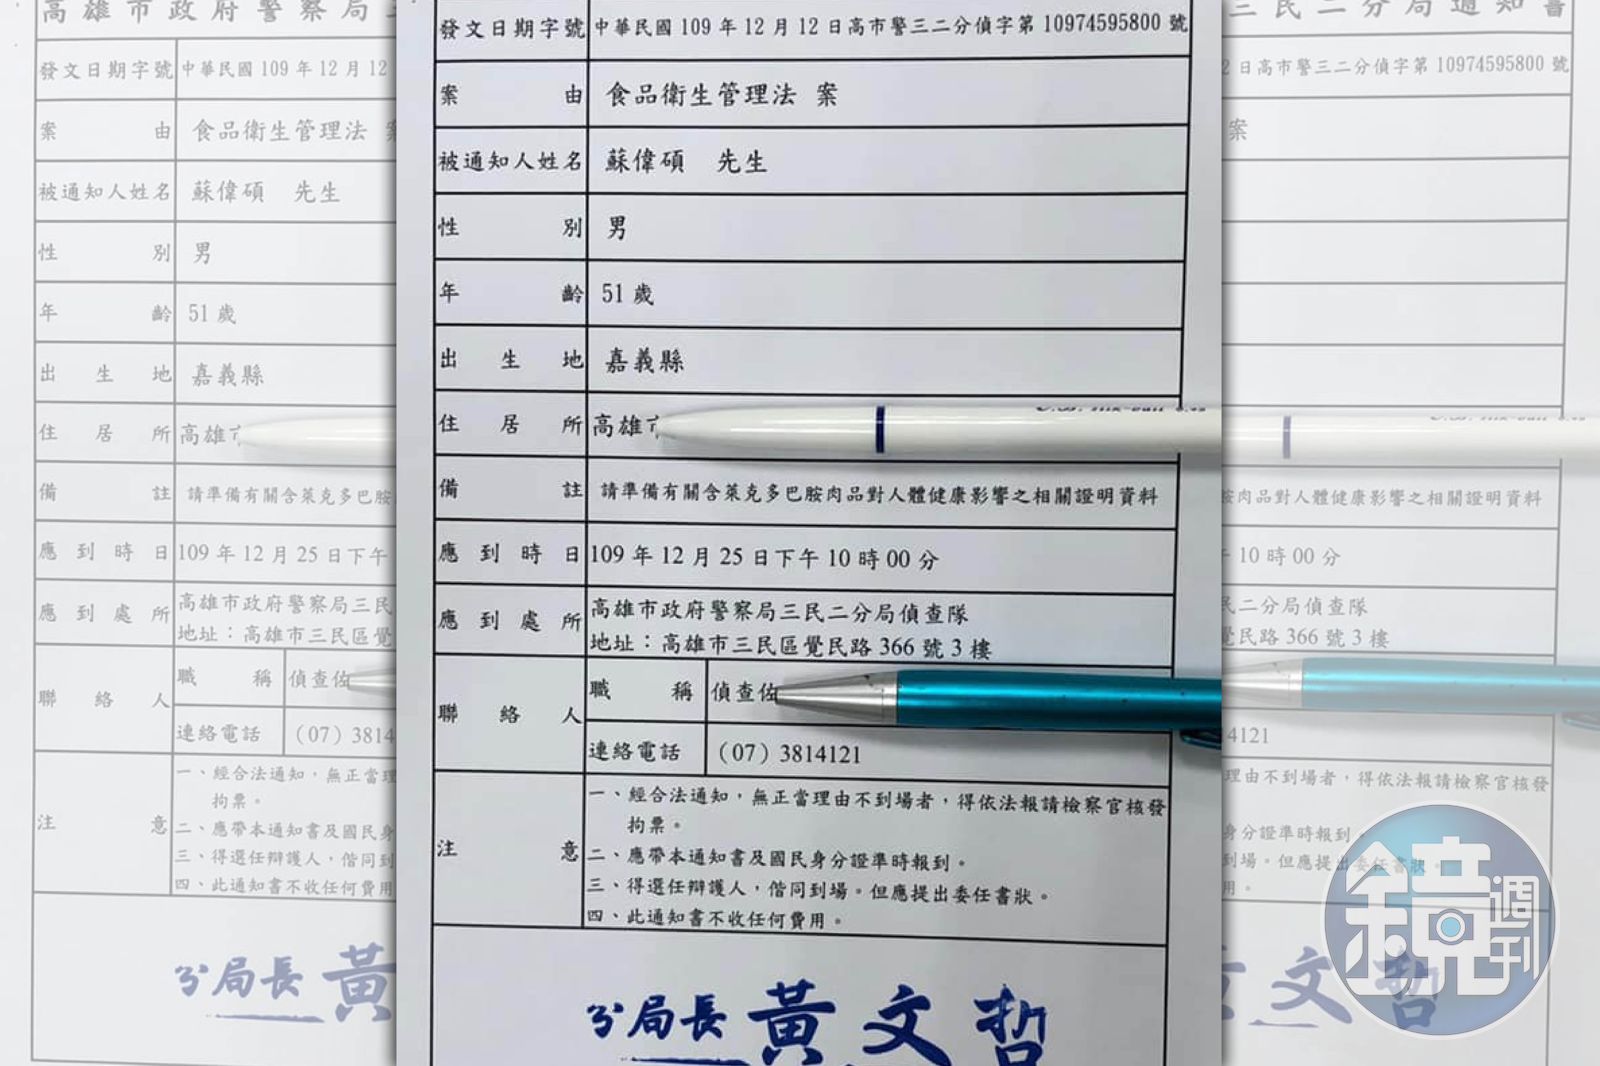 高雄市政府警察局三民二分局通知書
發文日期字號 中華民國 109 年 12 月 12 日高市警三二分偵字第 10974595800 號
案由 食品衛生管理法 案
被通知人姓名 蘇偉碩 先生
性別 男
年齡 51 歲
出生地 嘉義縣
住居所 高雄市
備註 請準備有關含萊克多巴胺肉品對人體健康影響之相關證明資料
應到時日 109 年 12 月 25 日下午 10 時 00 分
應到處所 高雄市政府警察局三民二分局偵查隊
地址：高雄市三民區覺民路 366 號 3 樓
聯絡人 職稱 偵查佐
連絡電話 (07) 3814121
注意 一、經合法通知，無正當理由不到場者，得依法報請檢察官核發
拘票。
二、應帶本通知書及國民身分證準時報到。
三、得選任辯護人，偕同到場。但應提出委任書狀。
四、此通知書不收任何費用。
分局長 黃文哲
鏡週刊